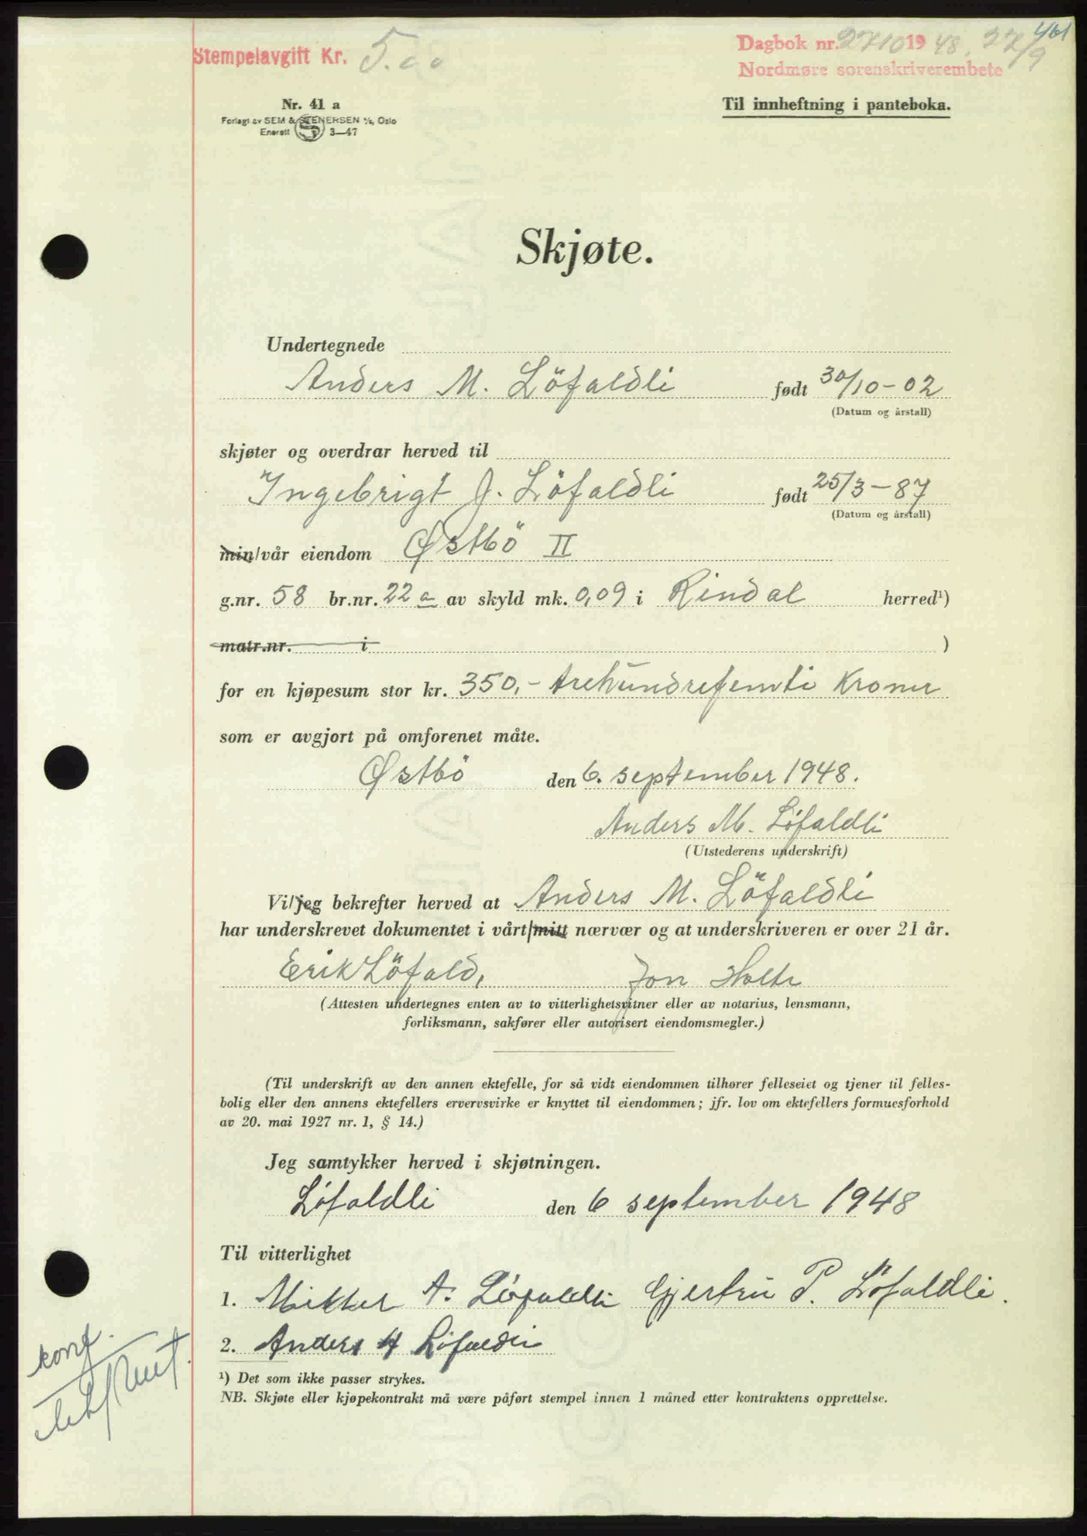 461
Stempelavgift Kr. 5.00
Dagbok nr. 2710 1948. 27/9
Nordmøre sorenskriverembete
Nr. 41 a
Forlagt av SEM & STENERSEN A/S, Oslo
Enerett S 3—47
Til innheftning i panteboka.
Skjøte.
Undertegnede
Anders M. Löfaldli født 30/10-02
(Datum og årstall)
skjøter og overdrar herved til
Ingebrigt J. Löfaldli født 25/3-87
(Datum og årstall)
min/vår eiendom Østbö II
g.nr. 58 br.nr. 22 a av skyld mk. 0,09 i Rindal herred¹)
matr.nr. i )
for en kjøpesum stor kr. 350,- trehundrefemti Kroner
som er avgjort på omforenet måte.
Østbö den 6. september 1948.
Anders M. Löfaldli
(Utstederens underskrift)
Vi/jeg bekrefter herved at Anders M. Löfaldli
har underskrevet dokumentet i vårt/mitt nærvær og at underskriveren er over 21 år.
Erik Löfald, Jon Holte
(Attesten undertegnes enten av to vitterlighetsvitner eller av notarius, lensmann,
forliksmann, sakfører eller autorisert eiendomsmegler.)
(Til underskrift av den annen ektefelle, for så vidt eiendommen tilhører felleseiet og tjener til felles-
bolig eller den annens ektefellers ervervsvirke er knyttet til eiendommen; jfr. lov om ektefellers formuesforhold
av 20. mai 1927 nr. 1, § 14.)
Jeg samtykker herved i skjøtningen.
Löfaldli den 6 september 1948
Til vitterlighet
1. Mikkel A. Löfaldli Gjertru P. Löfaldli.
2. Anders H Löfaldli
¹) Det som ikke passer strykes.
NB. Skjøte eller kjøpekontrakt må være påført stempel innen 1 måned etter kontraktens opprettelse.
konf.